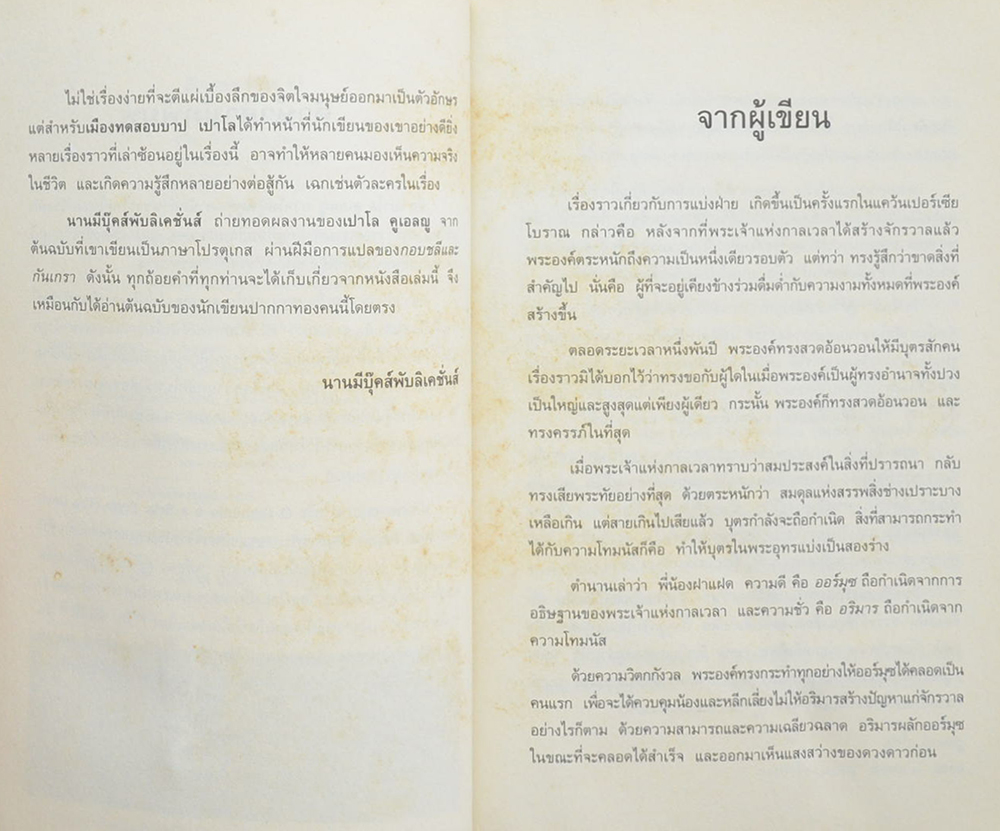 ไม่ใช่เรื่องง่ายที่จะตีแผ่เบื้องลึกของจิตใจมนุษย์ออกมาเป็นตัวอักษร
แต่สำหรับเมืองทดสอบบาป เปาโลได้ทำหน้าที่นักเขียนของเขาอย่างดียิ่ง
หลายเรื่องราวที่เล่าซ้อนอยู่ในเรื่องนี้ อาจทำให้หลายคนมองเห็นความจริง
ในชีวิต และเกิดความรู้สึกหลายอย่างต่อสู้กัน เฉกเช่นตัวละครในเรื่อง
นานมีบุ๊คส์พับลิเคชั่นส์ ถ่ายทอดผลงานของเปาโล คูเอลญู จาก
ต้นฉบับที่เขาเขียนเป็นภาษาโปรตุเกส ผ่านฝีมือการแปลของกอบชลีและ
กันเกรา ดังนั้น ทุกถ้อยคำที่ทุกท่านจะได้เก็บเกี่ยวจากหนังสือเล่มนี้ จึง
เหมือนกับได้อ่านต้นฉบับของนักเขียนปากกาทองคนนี้โดยตรง
นานมีบุ๊คส์พับลิเคชั่นส์
จากผู้เขียน
เรื่องราวเกี่ยวกับการแบ่งฝ่าย เกิดขึ้นเป็นครั้งแรกในแคว้นเปอร์เซีย
โบราณ กล่าวคือ หลังจากที่พระเจ้าแห่งกาลเวลาได้สร้างจักรวาลแล้ว
พระองค์ตระหนักถึงความเป็นหนึ่งเดียวรอบตัว แต่ทว่า ทรงรู้สึกว่าขาดสิ่งที่
สำคัญไป นั่นคือ ผู้ที่จะอยู่เคียงข้างร่วมดื่มด่ำกับความงามทั้งหมดที่พระองค์
สร้างขึ้น
ตลอดระยะเวลาหนึ่งพันปี พระองค์ทรงสวดอ้อนวอนให้มีบุตรสักคน
เรื่องราวมิได้บอกไว้ว่าทรงขอกับผู้ใดในเมื่อพระองค์เป็นผู้ทรงอำนาจทั้งปวง
เป็นใหญ่และสูงสุดแต่เพียงผู้เดียว กระนั้น พระองค์ก็ทรงสวดอ้อนวอน และ
ทรงครรภ์ในที่สุด
เมื่อพระเจ้าแห่งกาลเวลาทราบว่าสมประสงค์ในสิ่งที่ปรารถนา กลับ
ทรงเสียพระทัยอย่างที่สุด ด้วยตระหนักว่า สมดุลแห่งสรรพสิ่งช่างเปราะบาง
เหลือเกิน แต่สายเกินไปเสียแล้ว บุตรกำลังจะถือกำเนิด สิ่งที่สามารถกระทำ
ได้กับความโทมนัสก็คือ ทำให้บุตรในพระอุทรแบ่งเป็นสองร่าง
ตำนานเล่าว่า พี่น้องฝาแฝด ความดี คือ ออร์มุซ ถือกำเนิดจากการ
อธิษฐานของพระเจ้าแห่งกาลเวลา และความชั่ว คือ อริมาร ถือกำเนิดจาก
ความโทมนัส
ด้วยความวิตกกังวล พระองค์ทรงกระทำทุกอย่างให้ออร์มุซได้คลอดเป็น
คนแรก เพื่อจะได้ควบคุมน้องและหลีกเลี่ยงไม่ให้อริมารสร้างปัญหาแก่จักรวาล
อย่างไรก็ตาม ด้วยความสามารถและความเฉลียวฉลาด อริมารผลักออร์มุซ
ในขณะที่จะคลอดได้สำเร็จ และออกมาเห็นแสงสว่างของดวงดาวก่อน